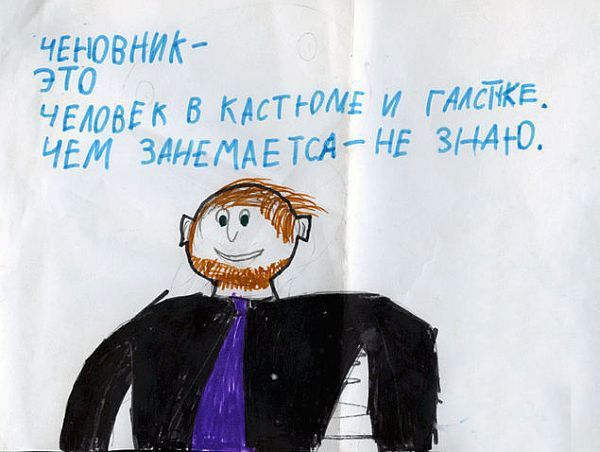 ЧЕНОВНИК-
ЭТО
ЧЕЛОВЕК В КАСТЮМЕ И ГАЛСТУКЕ.
ЧЕМ ЗАНЕМАЕТСА-НЕ ЗНАЮ.